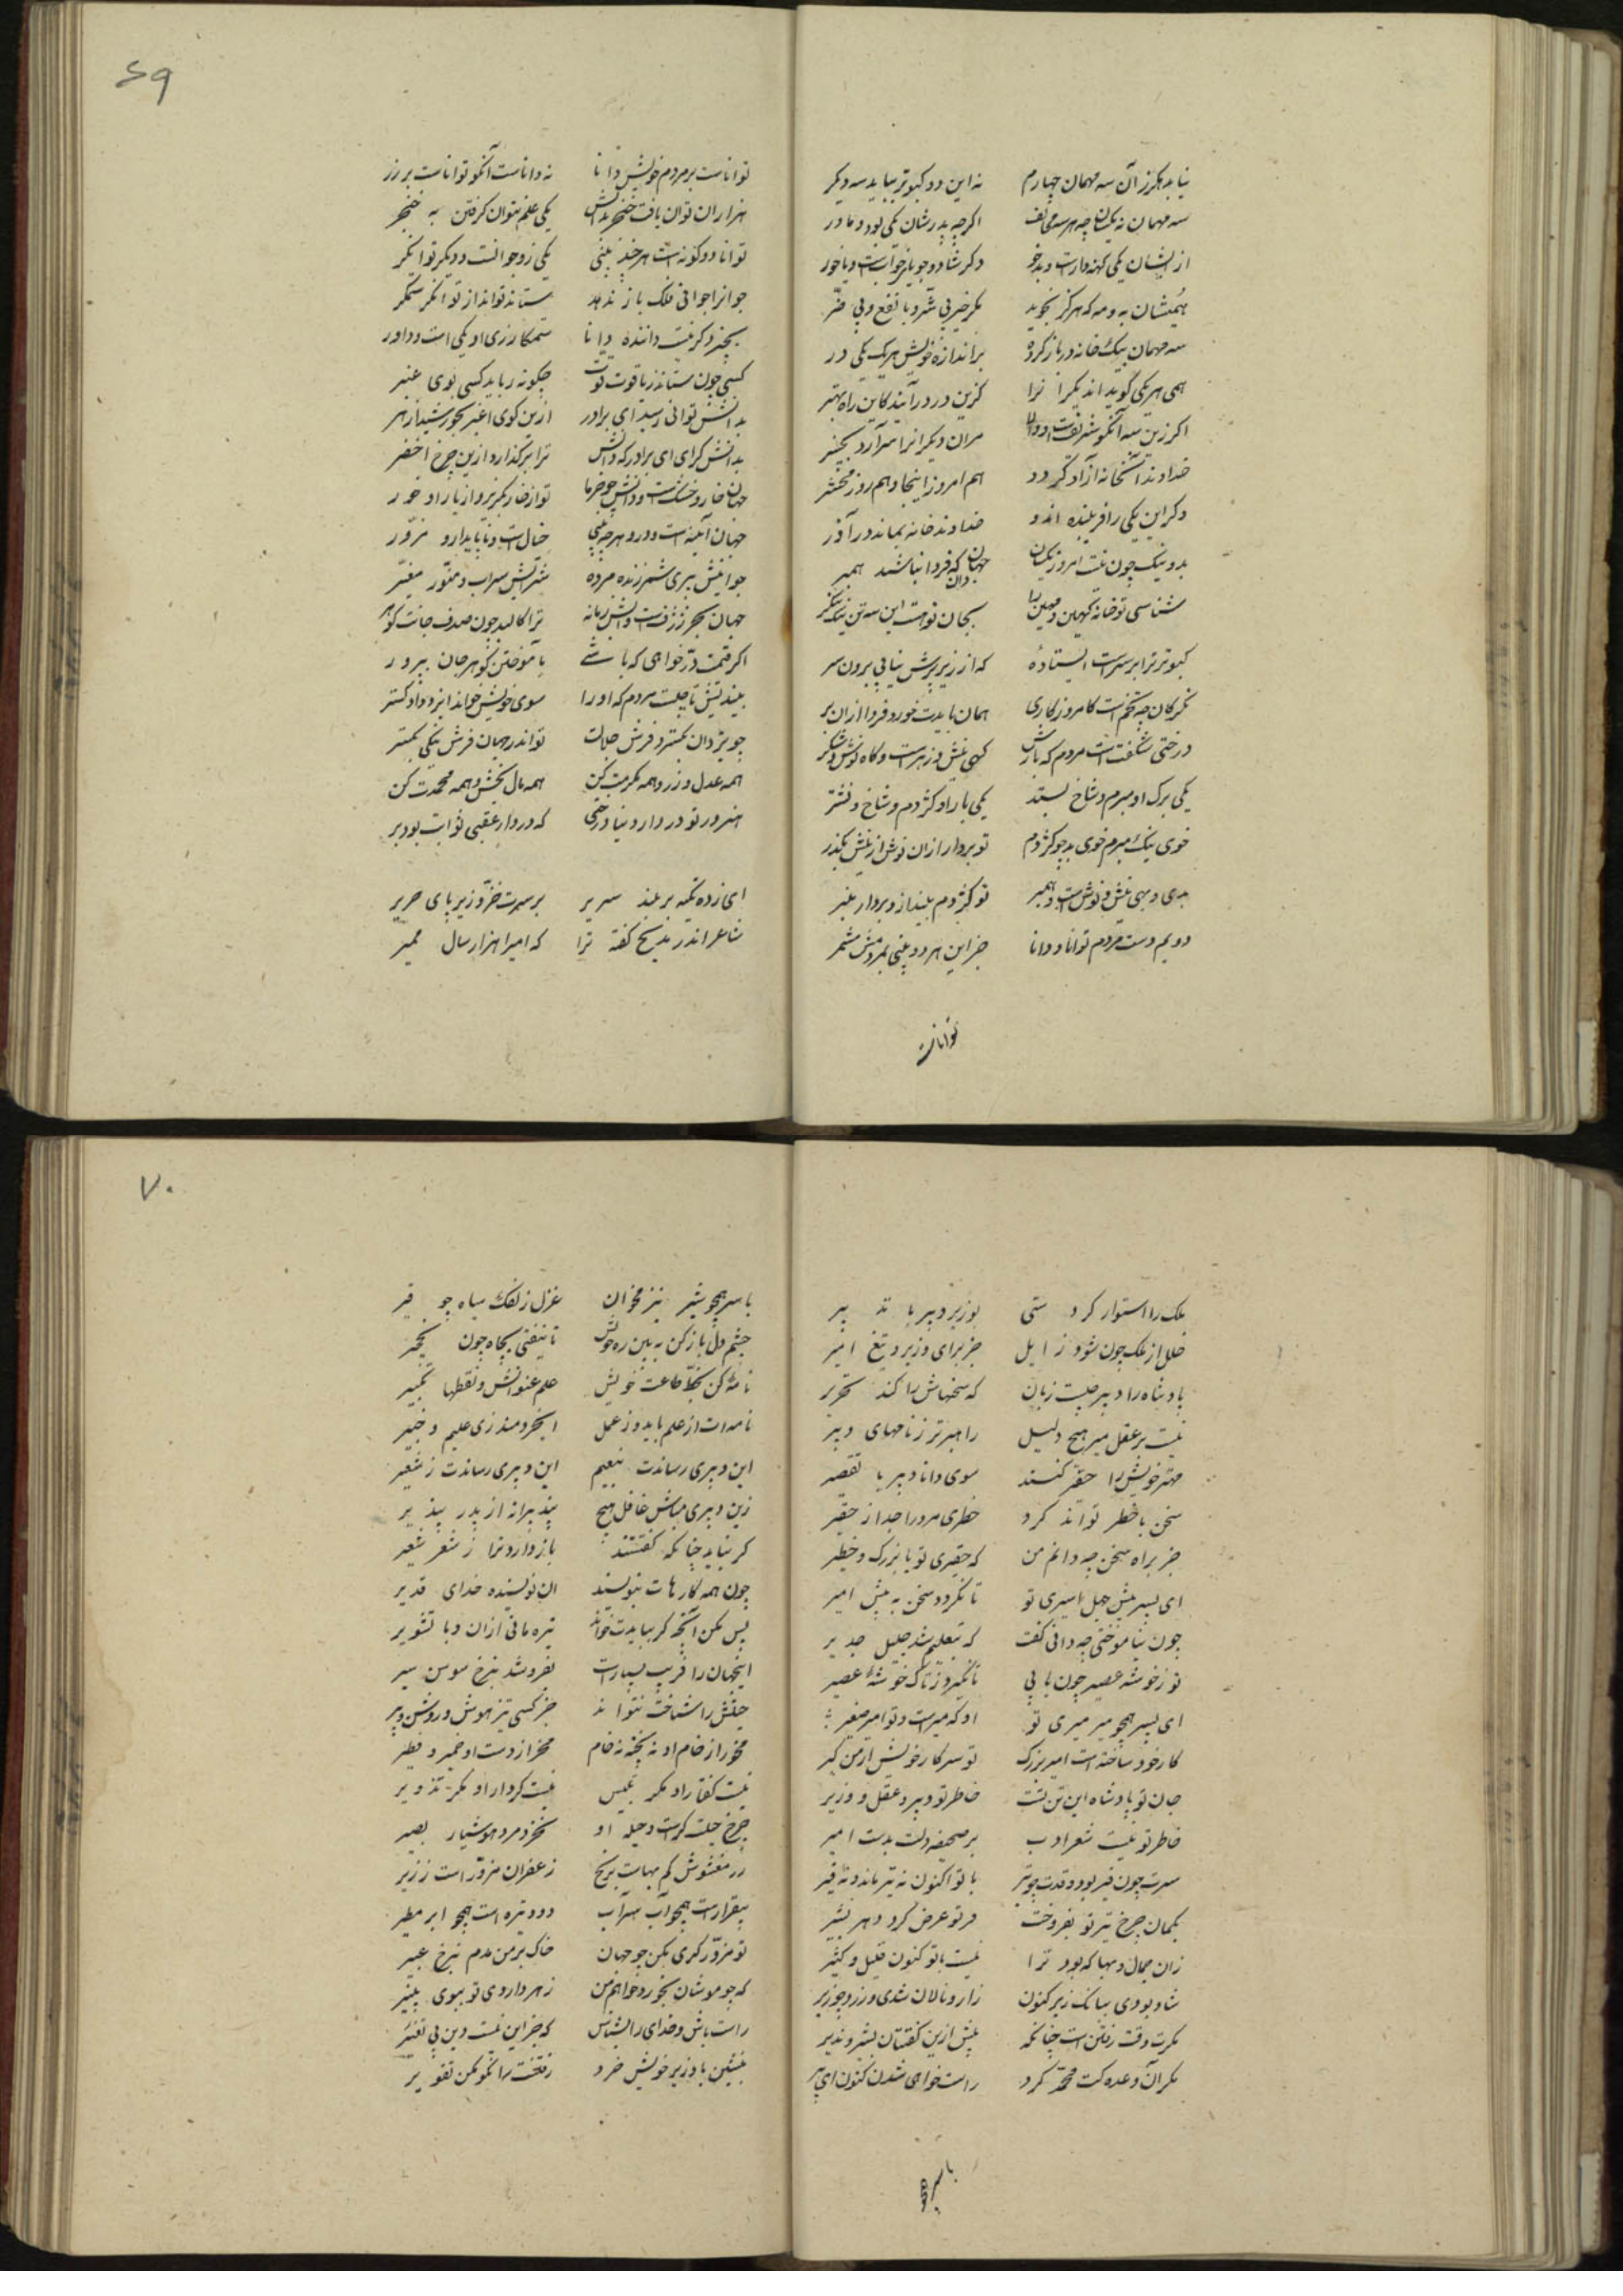 ۶۹
نیابد هرگز آن سه مهمان چهارم نه این دو کبوتر بیابد سه دیگر
سه مهمان نه یکسان چه هر سه مخالف اگرچه پدرشان یکی بود و مادر
از ایشان یکی کینه دارست و بدخو دگر شاد و جویای خوابست و یا خور
بهینشان به و مه که هرگز نجوید مگر خیر بی شر و یا نفع بی ضر
سه مهمان بیک خانه در باز کرده بر اندازه خویش هر یک یکی در
همی هر یکی گوید اندیگرانرا کزین در درآیید کاین راه بهتر
اگر زین سه آنکو شریفست او دان مران دیگرانرا سر آرد بچنبر
خداوند آنخانه آزاد گردد هم امروز اینجا و هم روز محشر
دگر این یکی را فریبنده اندو خداوند خانه بماند در آذر
بد و نیک چون نیست امروز یکسان جهان دان که فردا نباشد همبر
شناسی تو خانه کهین و مهین را بجان تو هست این سه تن نیک بنگر
کبوتر ترا بر سرست ایستاده که از زیر پرش نیابی برون سر
نگر کان چه تخمست کامروز کاری همان بایدت خورد فردا ازان بر
درختی شگفت است مردم که بارش گهی نیش و زهرست و گاه نوش و شکر
یکی برگ او مبرم و شاخ بسد یکی بار او کژدم و شاخ و نشتر
خوی نیک مبرم خوی بد چو کژدم تو بردار ازان نوش از نیش بگذر
بدی و بهی نیش و نوش است همبر تو کژدم بینداز و بردار عنبر
دویم دست مردم توانا و دانا جز این هر دو بینی بمردمش مشمر
تواناست
تواناست بر مردم خویش دانا نه داناست آنکو تواناست بر زر
هزاران توان یافت خنجر بدانش یکی علم نتوان گرفتن به خنجر
توانا دو گونه است هر چند بینی یکی زو جوانست و دیگر توانگر
جوانرا جوانی فلک باز ندهد ستاند تواند از توانگر ستمگر
بچیز دگر نیست داننده دانا ستمکار زی او یکی است و داور
کسی چون ستاند ز یاقوت قوت چگونه رباید کسی بوی عنبر
بدانش توانی رسید ای برادر ازین گوی اغبر بخورشید ازهر
بدانش گرای ای برادر که دانش ترا برگذارد ازین چرخ اخضر
جهان خار و خشکست و دانش چو خرما تو از خار بگریز و از یار او خور
جهان آینه است و درو هر چه بینی خیال است و ناپایدار و مزور
جوانیش پیری شمر زنده مرده شرابش سراب و منور مغبر
جهان بحر ژرفست و آبش زمانه ترا کالبد چون صدف جانت گوهر
اگر قیمت در خواهی که باشی بآموختن گوهر جان بپرور
بیندیش تا چیست مردم که او را سوی خویش خواند ایزد دادگستر
چو یزدان بگسترد فرش جلالت تو اندر جهان فرش نیکی بگستر
همه عدل ورز و همه مکرمت کن همه مال بخش و همه محمدت کن
هنرور تو در دار دنیا درختی که در دار عقبی ثوابت بود بر
ای زده تکیه بر بلند سریر بر سرت خز و زیر پای حریر
شاعر اندر مدیح گفته ترا که امیرا هزار سال ممیر
۷۰
ملک را استوار کردستی بوزیر و دبیر با تدبیر
خلل از ملک چون شود زایل جز برای وزیر و تیغ امیر
پادشاه را دبیر چیست زبان که سخنهاش را کند تحریر
نیست بر عقل میر هیچ دلیل راهبرتر ز نامهای دبیر
مهتر خویش را حقیر کنند سوی دانا دبیر با تقصیر
سخن با خطر تواند کرد خطری مرد را جدا ز حقیر
جز براه سخن چه دانم من که حقیری تو یا بزرگ و خطیر
ای بسر پیش جهل اسیری تو تا نگردد سخن به پیش امیر
چون نیاموختی چه دانی گفت که بتعلیم شد جلیل جدیر
تو ز خوشه عصیر چون یابی تا نگیرد ز تاک خوشهٔ عصیر
ای بسر همچو میر میری تو او که میرست و تو امیر صغیر
کار خود ساخته است امیر بزرگ تو سر کار خویش از من گیر
جان تو پادشاه این تن تست خاطر تو دبیر و عقل وزیر
خاطر تو نبشت شعر ادب بر صحیفه دلت بدست امیر
سرت چون قیر بود و قدت چو تیر با تو اکنون نه تیر ماند و نه قیر
بکمان چرخ تیر تو بفروخت مر تو عرض کرد دهر بشیر
زان جمال و بها که بود ترا نیست با تو کنون قلیل و کثیر
شاد بودی ببانگ زیر کنون زار و نالان شدی و زرد چو زیر
مکرت وقت رفتن است چنانکه پیش ازین گفتتان بشیر و نذیر
مکر آن وعده کت محمد کرد راست خواهی شدن کنون ای پیر
با سر همچو
با سر همچو شیر نیز مخوان غزل زلفک سیاه چو قیر
چشم دل باز کن به بین ره خویش تا نیفتی بچاه چون نخچیر
نامهٔ کن بخط طاعت خویش علم عنوانش و نقطها تکبیر
نامه ات از علم باید و ز عمل ایخردمند زی علیم و خبیر
این دبیری رساندت بنعیم این دبیری رساندت ز سعیر
زین دبیری مباش غافل هیچ پند پیرانه از پدر بپذیر
گر نیاید چنانکه گفتستند باز دارد ترا ز شعر شعیر
چون همه کارهات بنویسند آن نویسنده خدای قدیر
پس مکن آنچه گر بیایدت خواند تیره مانی ازان و با تشویر
اینجهان را فریب بسیارست بفروشد بنرخ سوسن سیر
حیلتش را شناخت نتواند جز کسی تیز هوش و روشن و ویر
مخور از خام او نه پخته نه خام مخر از دست او خمیر و فطیر
نیست گفتار او مگر تلبیس نیست کردار او مگر تزویر
چرخ حیلت گرست و حیله او نخرد مرد هوشیار بصیر
زر مغشوش کم بهاست برنج زعفران مزور است زریر
بیقرارست همچو آب سراب دود تیره است همچو ابر مطیر
تو مزور گری مکن چو جهان خاک بر من مدم بنرخ عبیر
که چو موشان نخورد خواهم من زهر داروی تو ببوی پنیر
راست باش و خدای را بشناس که جز این نیست دین بی تغییر
بنشین با وزیر خویش خرد رفتنت را نکو بکن تقدیر